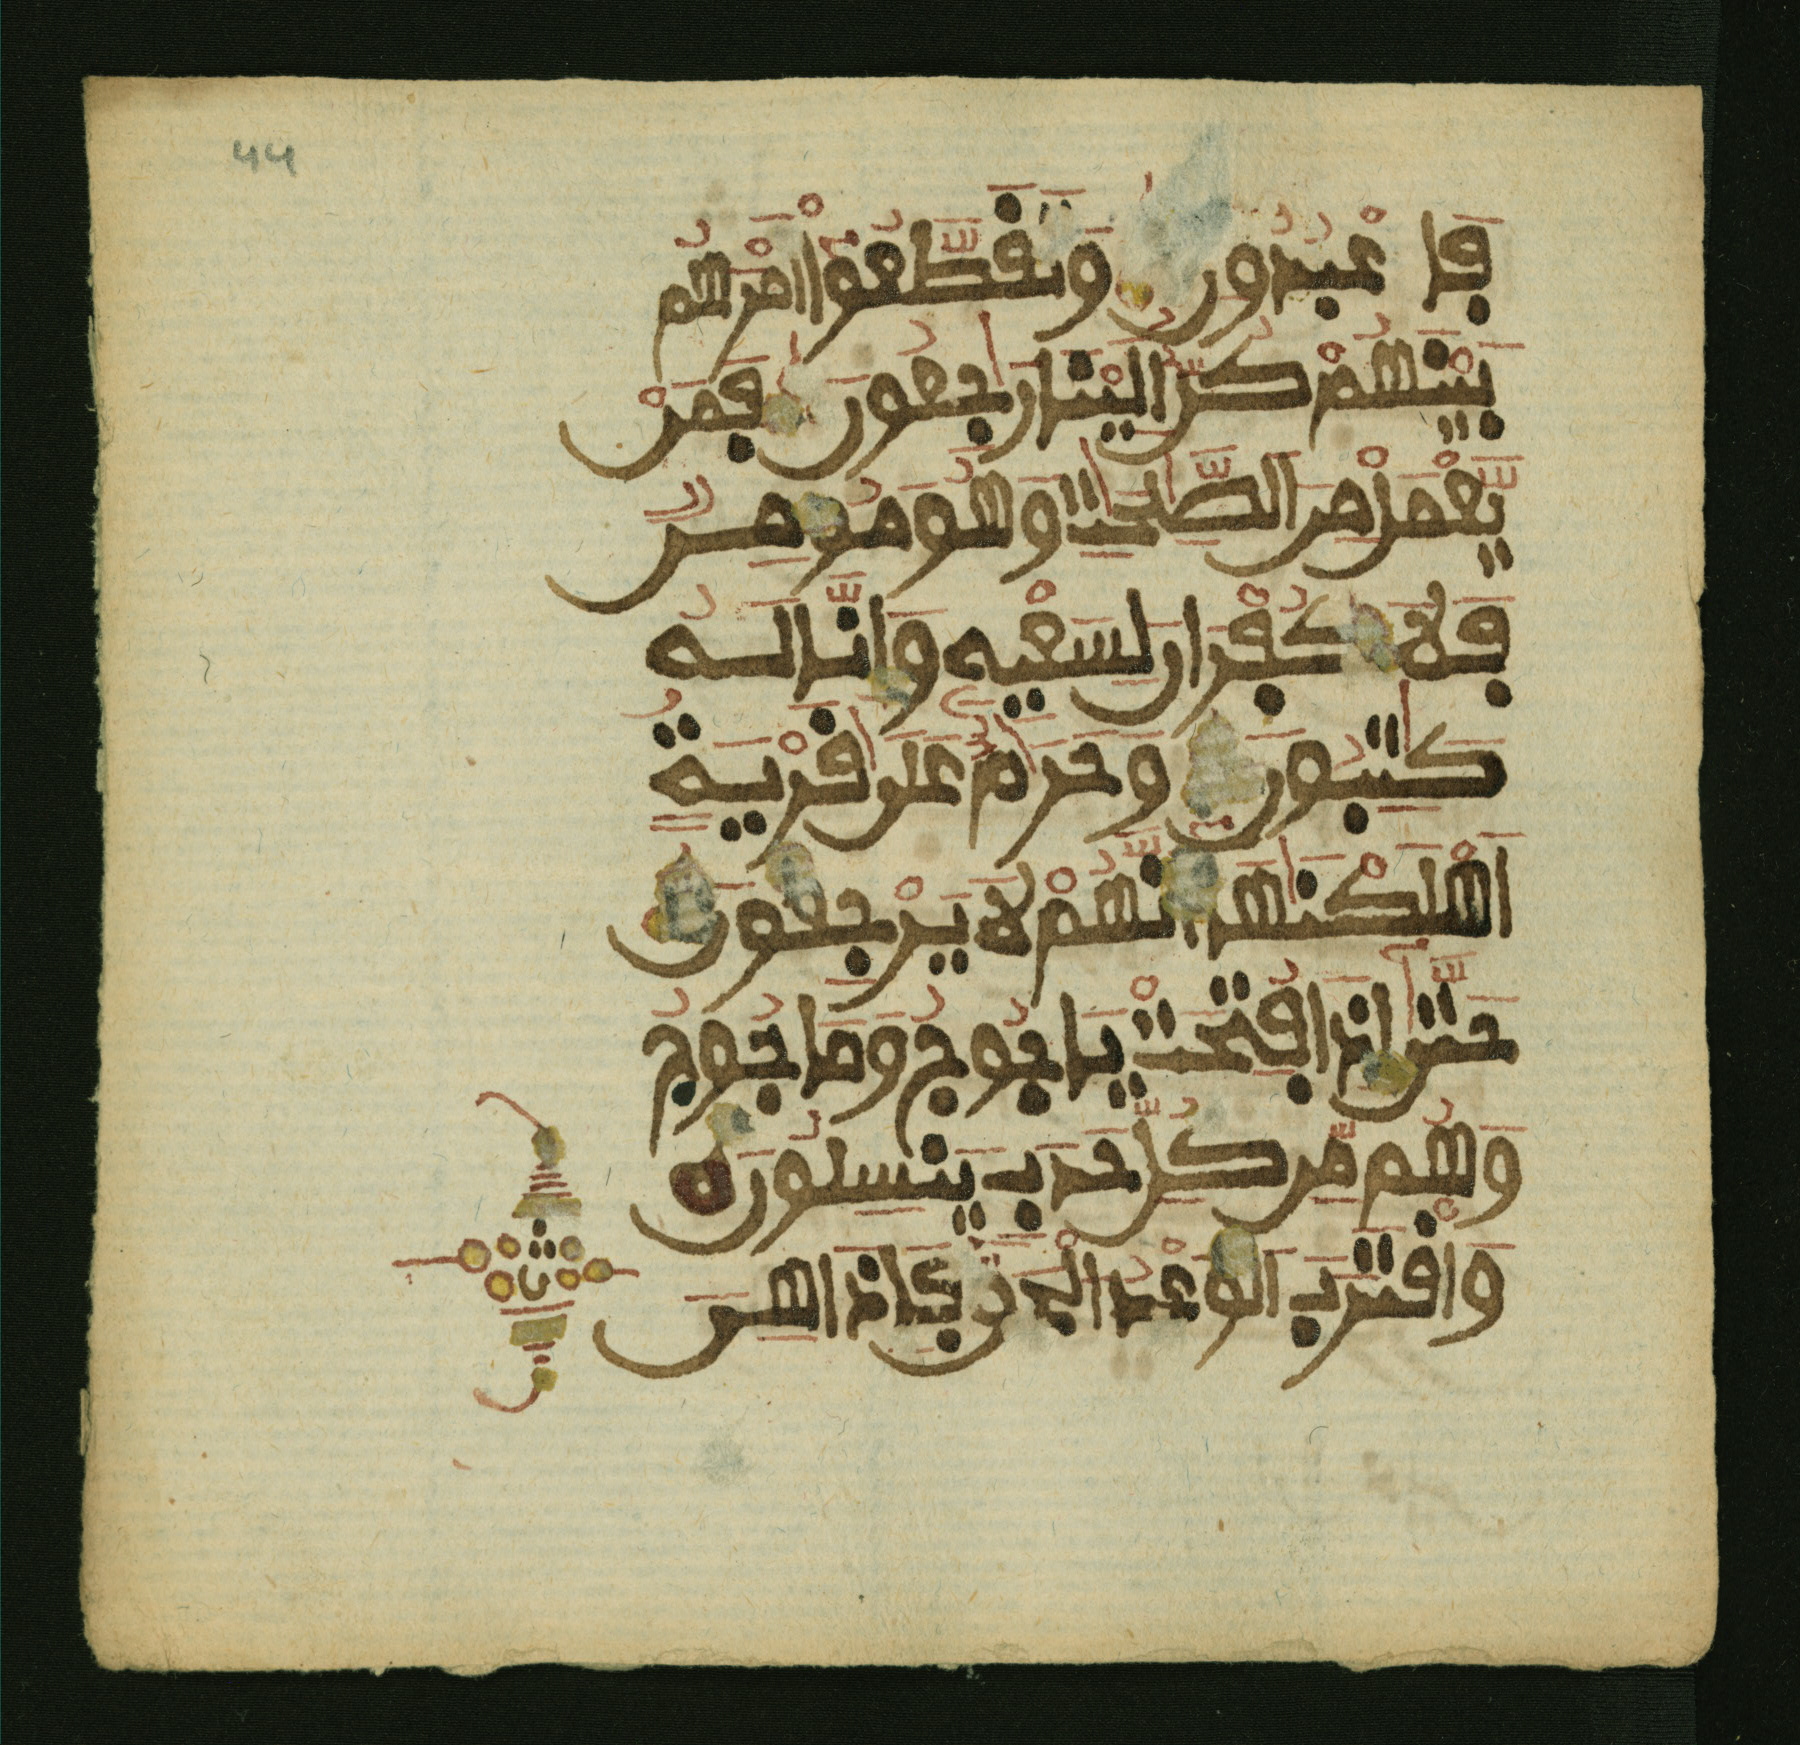 44
فَاعْبُدُونِ وَتَقَطَّعُوا أَمْرَهُم
بَيْنَهُمْ كُلٌّ إِلَيْنَا رَٰجِعُونَ فَمَنْ
يَّعْمَلْ مِنَ الصَّٰلِحَٰتِ وَهُوَ مُومِنٌ
فَلَا كُفْرَانَ لِسَعْيِهِ وَإِنَّا لَهُ
كَٰتِبُونَ وَحَرَٰمٌ عَلَىٰ قَرْيَةٍ
أَهْلَكْنَٰهَا أَنَّهُمْ لَا يَرْجِعُونَ
حَتَّىٰ إِذَا فُتِحَتْ يَاجُوجُ وَمَاجُوجُ
وَهُم مِّن كُلِّ حَدَبٍ يَنسِلُونَ
وَاقْتَرَبَ الْوَعْدُ الْحَقُّ فَإِذَا هِيَ